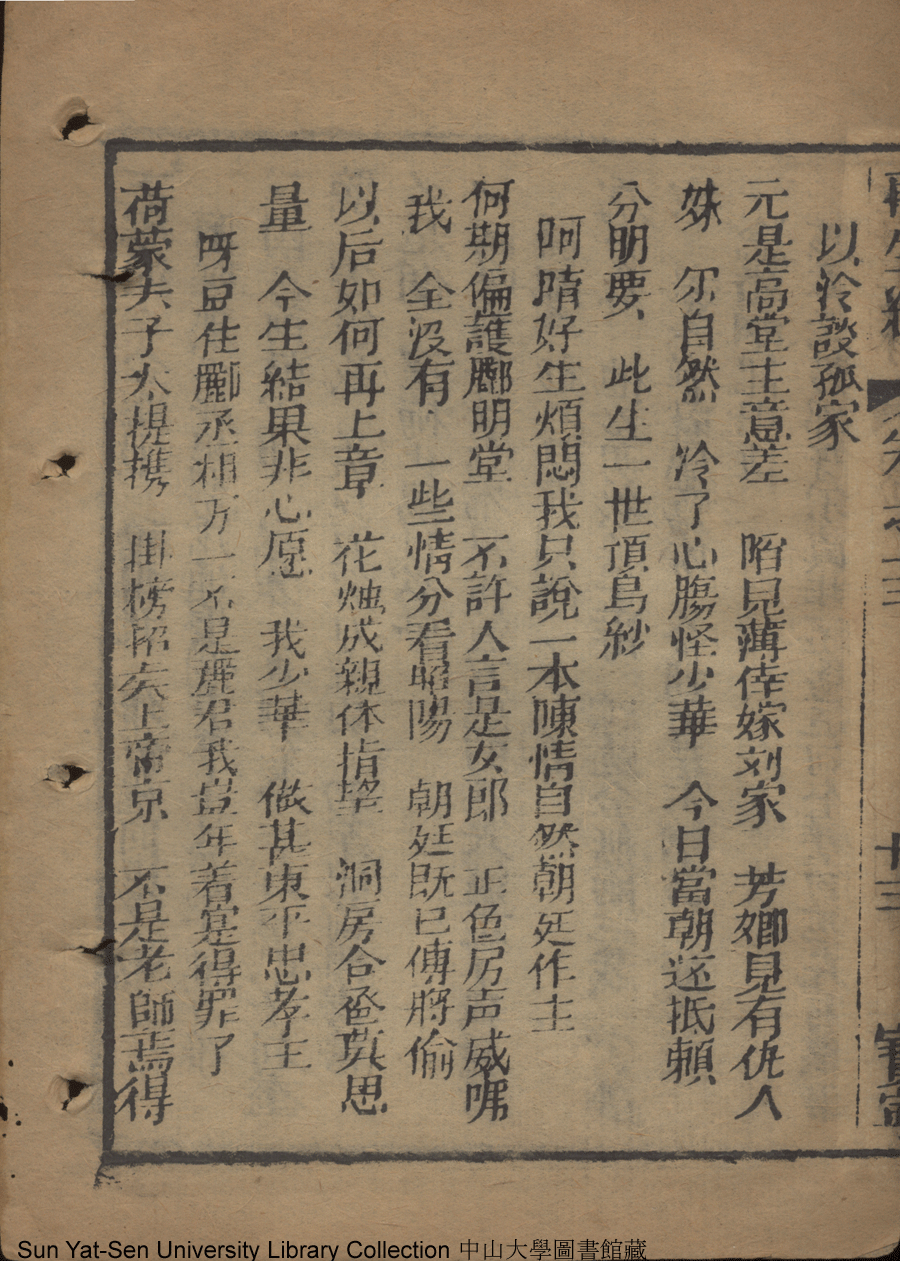 再生緣 卷之十三 十三
以冷談孤家
元是高堂主意差 陌見薄倖嫁刘家 芳卿見有仇人
姝 尔自然 冷了心腸怪少華 今日當朝还抵賴
分明要 此生一世頂烏紗
呵唷好生煩悶我只說一本陳情自然朝廷作主
何期偏護酈明堂 不許人言是女郎 正色厉声威嚇
我 全没有 一些情分看昭陽 朝廷既已傳將偷
以后如何再上章 花烛成親休指望 洞房合卺莫思
量 今生結果非心愿 我少華 做甚東平忠孝王
呀豆住酈丞相万一不是麗君我豈年着寔得罪了
荷蒙夫子大提携 掛榜招矣上帝京 不是老師焉得
Sun Yat-Sen University Library Collection 中山大學圖書館藏